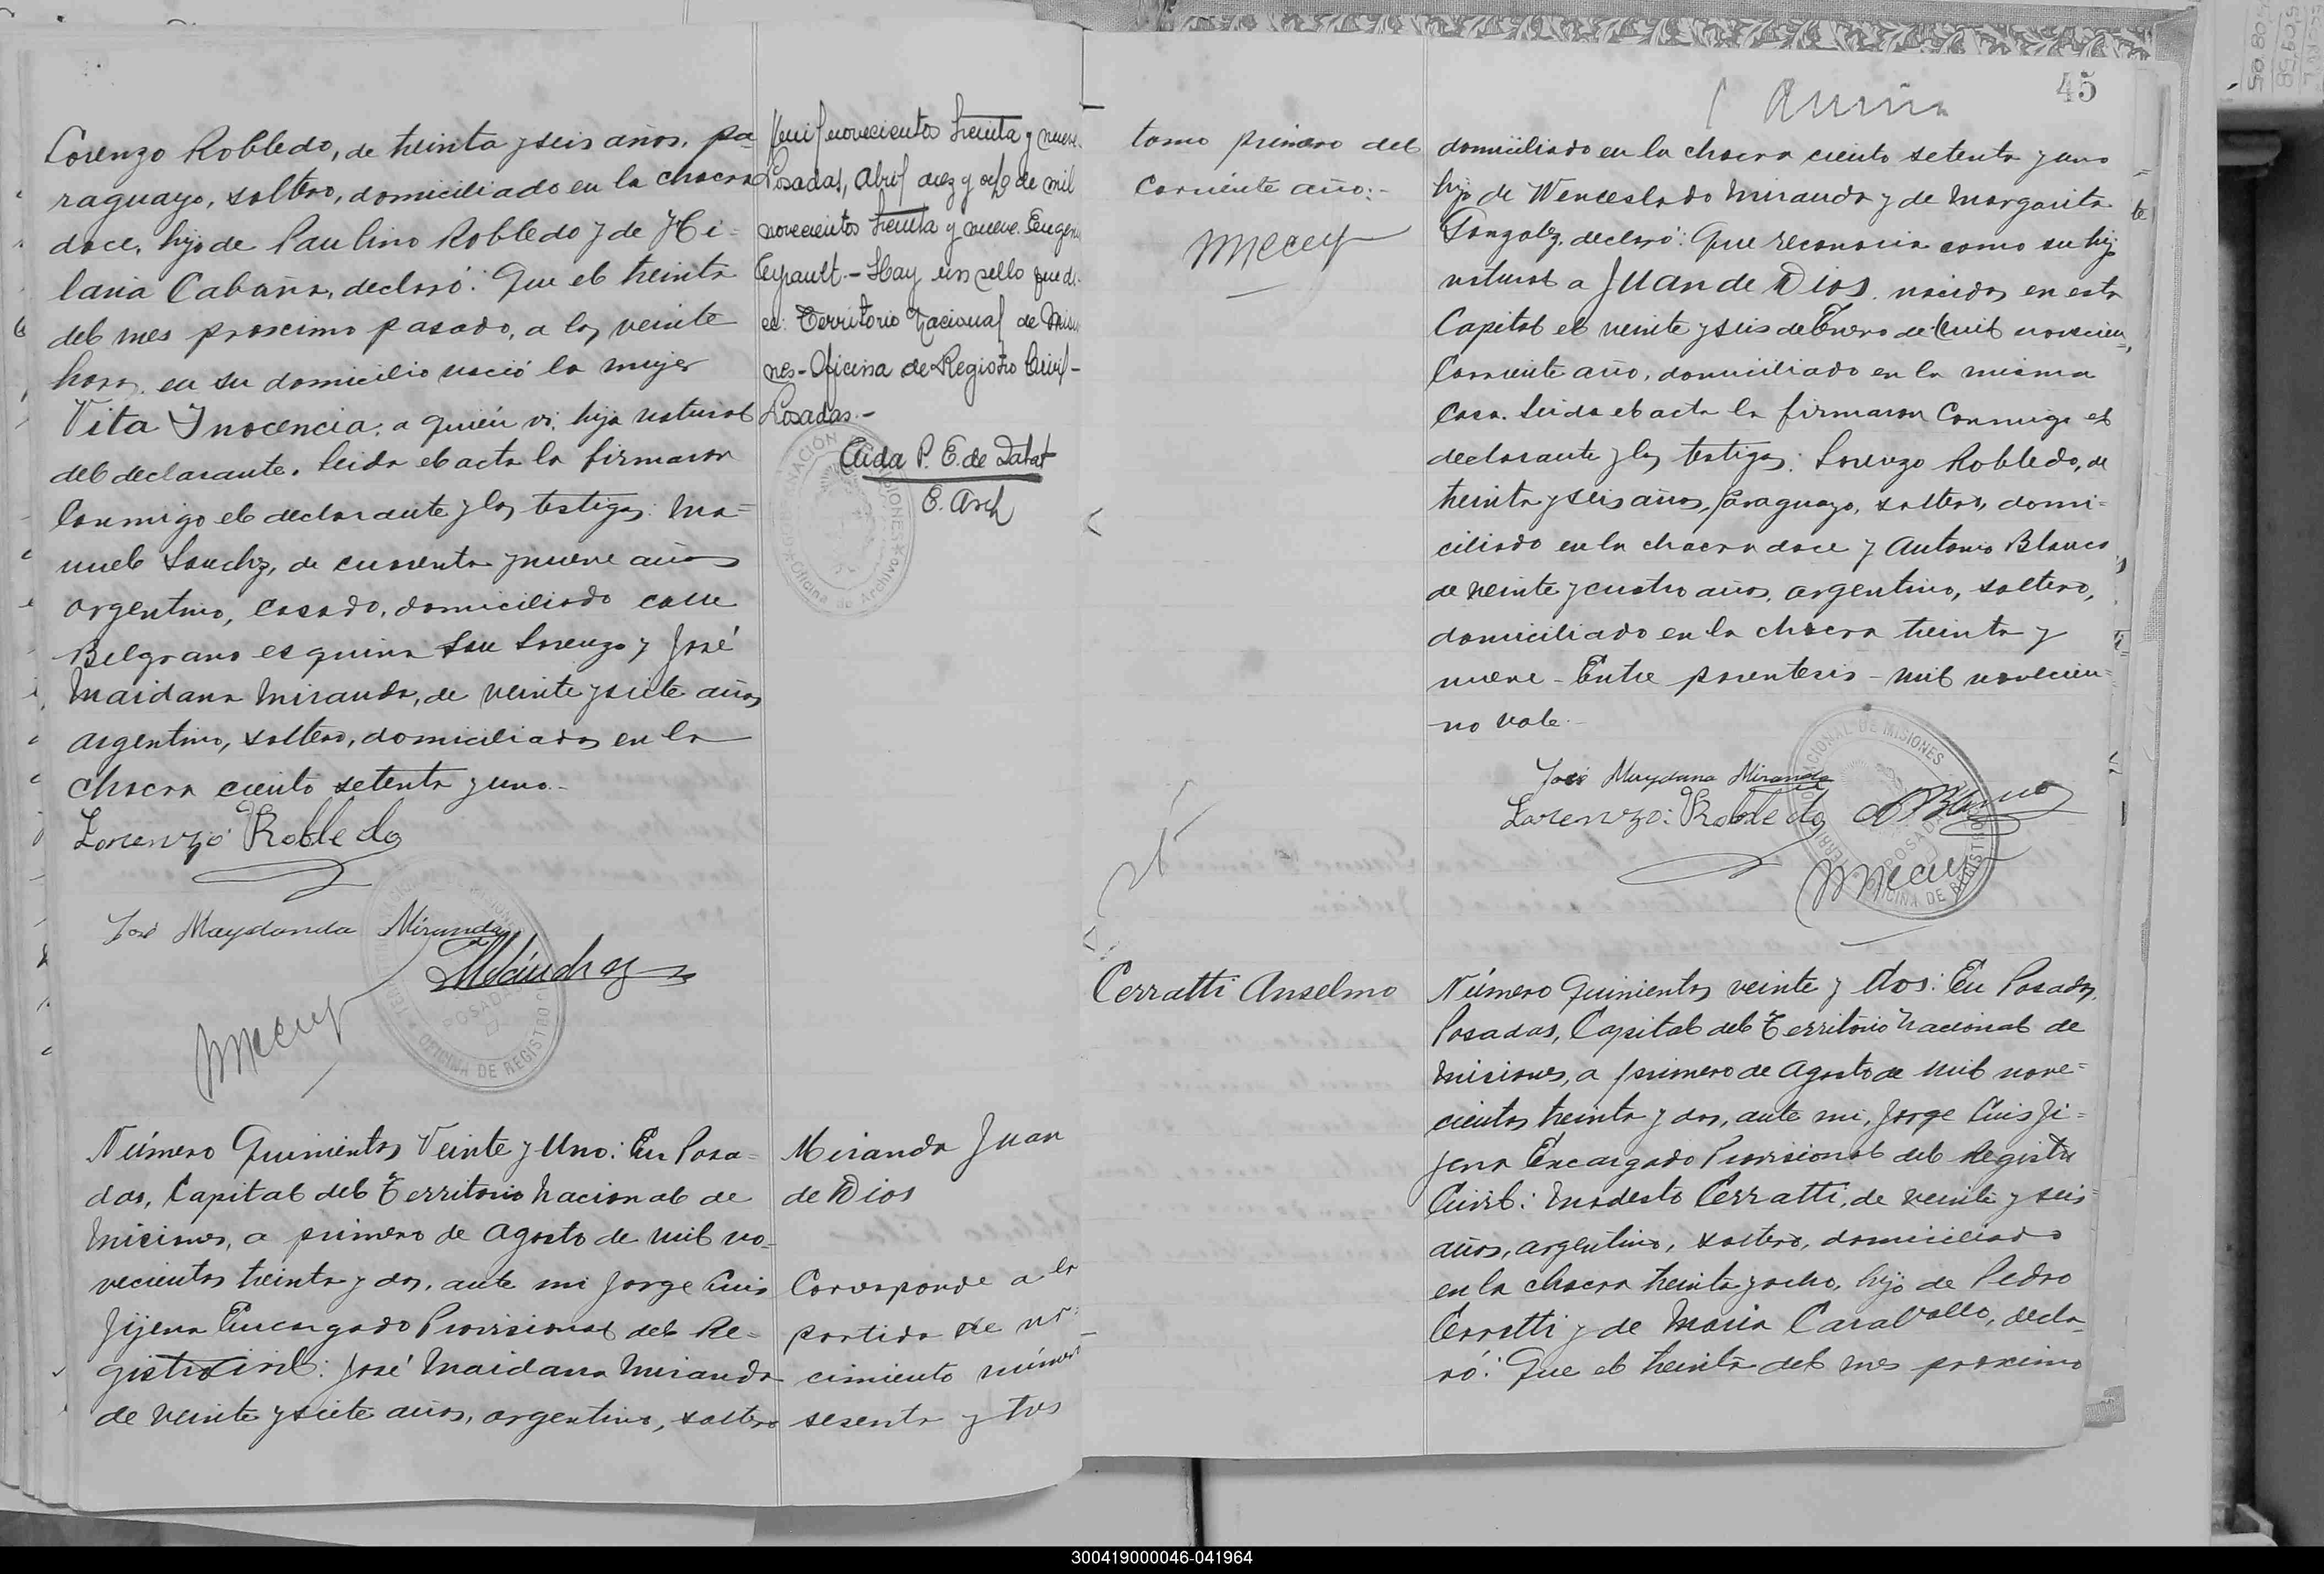 Lorenzo Robledo, de treinta y seis años, pa-
raguayo, soltero, domiciliado en la chacra
doce, hijo de Paulino Robledo y de Hi-
laria Cabaña, declaró: Que el treinta
del mes proscimo pasado, a las veinte
horas, en su domicilio nació la mujer
Vita Inocencia, a quién vi, hija natural
del declarante. Leida el acta la firmaron
Conmigo el declarante y los testigos: Ma-
nuel Sanchez, de cuarenta y nueve años
argentino, casado, domiciliado calle
Belgrano esquina San Lorenzo y José
Maidana Miranda, de veinte y siete años
argentino, soltero, domiciliados en la
chacra ciento setenta y uno.-
Lorenzo Robledo
José Maydanda Miranda
MSánchez
OFICINA DE REGISTRO
POSADAS
Número Quinientos Veinte y Uno: En Posa-
das, Capital del Territorio Nacional de
Misiones, a primero de Agosto de mil no-
vecientos treinta y dos, ante mi Jorge Luis
Jijena Encargado Provisional del Re-
gistro Civil: José Maidana Miranda
de veinte y siete años, argentino, soltero
mil novecientos treinta y nueve.
Posadas, Abril diez y ocho de mil
novecientos treinta y nueve. Eugen
Leyrault.- Hay un sello que di-
ce: Territorio Nacional de Misio
nes-Oficina de Registro Civil-
Posadas.-
Aida P. E. de Dalat
E. Arch
Oficina de Archivo
Miranda Juan
de Dios
Corresponde a la
partida de na-
cimiento número
sesenta y tres
45
tomo primero del
Corriente año:-
domiciliado en la chacra ciento setenta y uno
hijo de Wenceslado Miranda y de Margarita
Gonzalez, declaró: Que reconocia como su hijo
natural a Juan de Dios, nacido en esta
Capital el veinte y seis de Enero de (mil novecien,
Corriente año, domiciliado en la misma
Casa. Leida el acta la firmaron Conmigo el
declarante y los testigos: Lorenzo Robledo, de
treinta y seis años, paraguayo, soltero, domi-
ciliado en la chacra doce y Antonio Blanco
de veinte y cuatro años, argentino, soltero,
domiciliado en la chacra treinta y
nueve - Entre parentesis - mil novecien-
no vale.-
José Maydana Miranda
Lorenzo: Robledo ABlanco
TERRITORIO NACIONAL DE MISIONES
OFICINA DE REGISTRO
POSADAS
Cerratti Anselmo
Número Quinientos veinte y dos: En Posadas,
Posadas, Capital del Territorio Nacional de
Misiones, a primero de Agosto de mil nove-
cientos treinta y dos, ante mi, Jorge Luis Ji-
jena Encargado Provisional del Registro
Civil: Modesto Cerratti, de veinte y seis
años, argentino, soltero, domiciliado
en la chacra treinta y ocho, hijo de Pedro
Cerratti y de Maria Caraballo, decla-
ró: Que el treinta del mes proximo
300419000046-041964